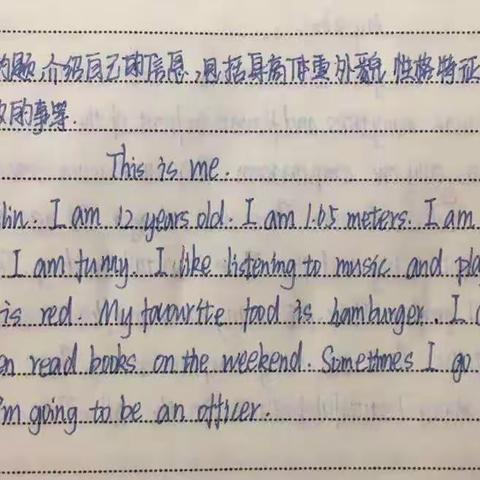 为题,介绍自己的信息,包括身高体重外貌 性格特征
的事等
This is me.
lin. I am 12 years old. I am 1.65 meters. I am
I am funny. I like listening to music and pla
is red. My favourite food is hamburger. I
en read books on the weekend. Sometimes I go
'm going to be an officer.